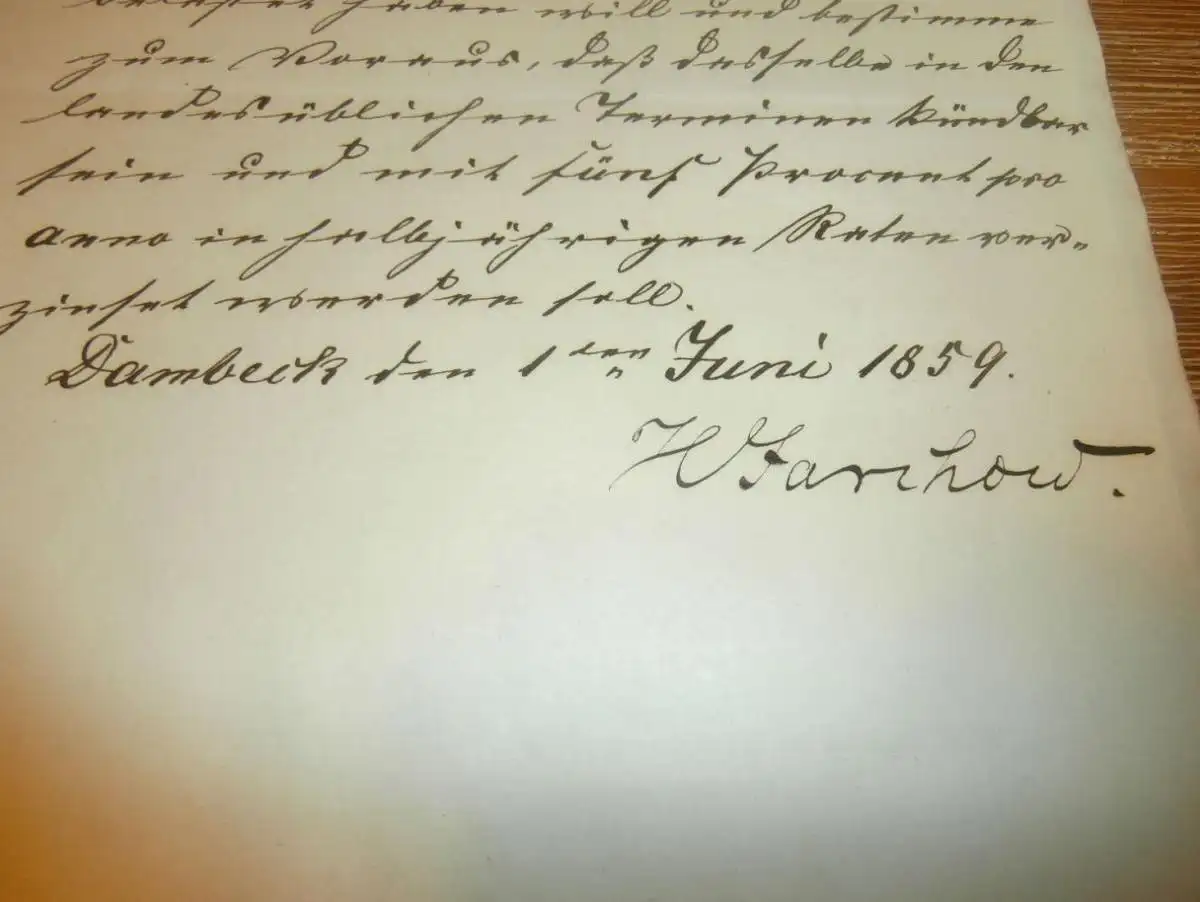 belastet haben will und bestimme
zum Voraus, daß dasselbe in den
landesüblichen Terminen kündbar
sein und mit fünf Procent pro
anno in halbjährigen Raten ver-
zinset werden soll.
Dambeck den 1ten Juni 1859.
H Jarchow.